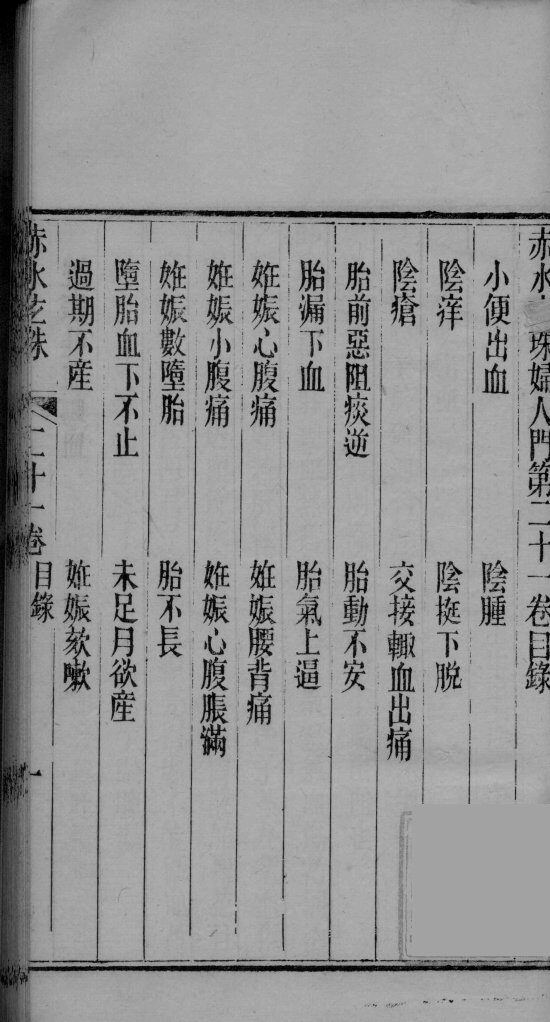 赤水珠婦人門第二十一卷目錄
小便出血　陰腫
陰痒　陰挺下脫
陰瘡　交接輙血出痛
胎前惡阻痰逆　胎動不安
胎漏下血　胎氣上逼
姙娠心腹痛　姙娠腰背痛
姙娠小腹痛　姙娠心腹脹滿
姙娠數墮胎　胎不長
墮胎血下不止　未足月欲産
過期不産　姙娠欬嗽
赤水玄珠　二十一卷目錄　一